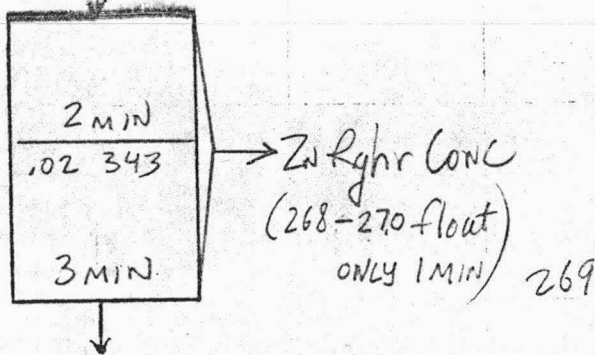 2 MIN
.02 343
3 MIN
Zn Rghr Conc
(268-270 float
ONLY 1 MIN)
269